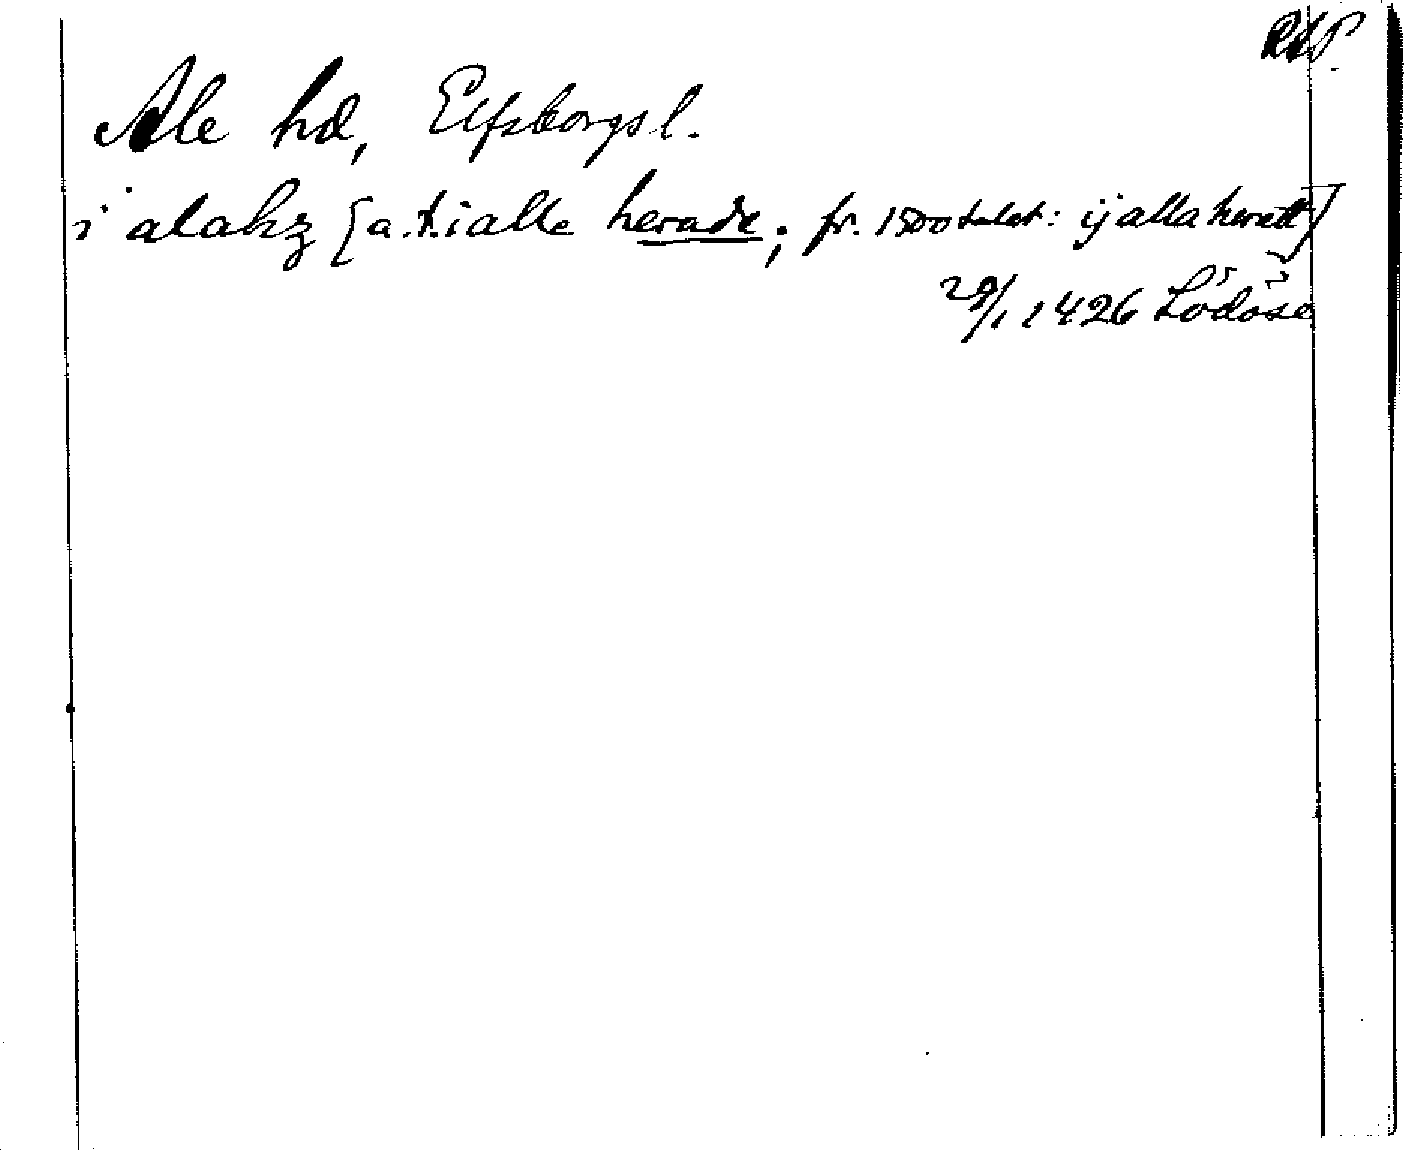 RAP.
Ale hd, Elfsborgs l.
i alahz [a.t. i alle herade; fr. 1500 talet: ij alla herett]
29/1 1426 Lödöse